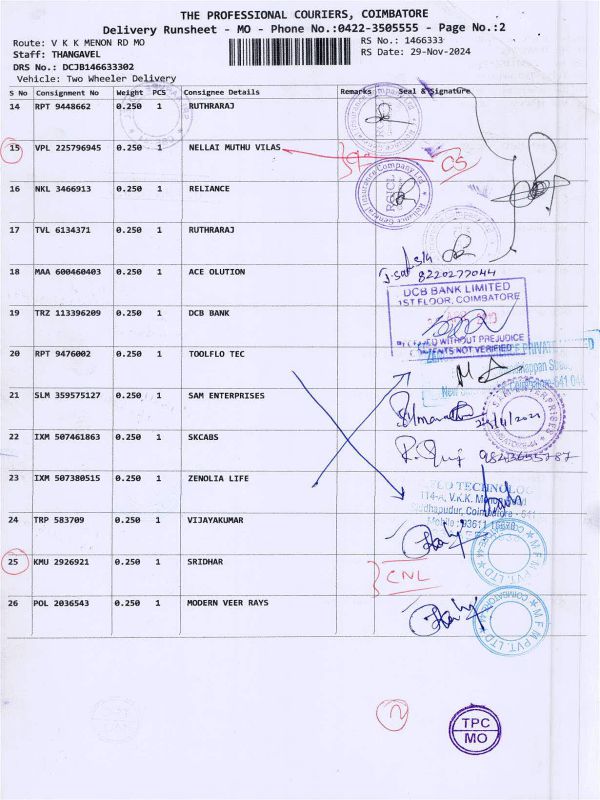 THE PROFESSIONAL COURIERS, COIMBATORE
Delivery Runsheet - MO - Phone No.:0422-3505555 - Page No.:2
Route: V K K MENON RD MO
RS No.: 1466333
Staff: THANGAVEL
RS Date: 29-Nov-2024
DRS No.: DCJB146633302
Vehicle: Two Wheeler Delivery
S No Consignment No Weight PCS Consignee Details Remarks Seal & Signature
14 RPT 9448662 0.250 1 RUTHRARAJ
15 VPL 225796945 0.250 1 NELLAI MUTHU VILAS CS
16 NKL 3466913 0.250 1 RELIANCE
Reliance General Insurance Company Ltd
RGICL
17 TVL 6134371 0.250 1 RUTHRARAJ
18 MAA 600460403 0.250 1 ACE OLUTION
8220277044
19 TRZ 113396209 0.250 1 DCB BANK
DCB BANK LIMITED
1ST FLOOR, COIMBATORE
WITHOUT PREJUDICE
CONTENTS NOT VERIFIED
20 RPT 9476002 0.250 1 TOOLFLO TEC
PRIVATE LTD
Coimbatore-641 044
21 SLM 359575127 0.250 1 SAM ENTERPRISES
22 IXM 507461863 0.250 1 SKCABS
9843655787
23 IXM 507380515 0.250 1 ZENOLIA LIFE
114-A, V.K.K. Menon
Siddhapudur, Coimbatore - 641
Mobile : 93611
24 TRP 583709 0.250 1 VIJAYAKUMAR
M F M PVT. LTD
COIMBATORE-44
25 KMU 2926921 0.250 1 SRIDHAR CNL
26 POL 2036543 0.250 1 MODERN VEER RAYS
M F M PVT. LTD
COIMBATORE-44
2
TPC
MO